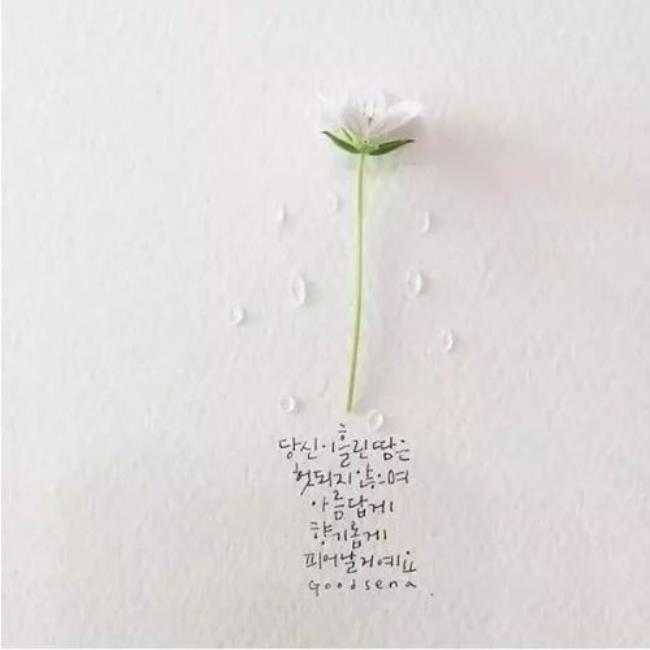 당신이 흘린 땀은
헛되지 않으며
아름답게
향기롭게
피어날거예요
Goodsena.